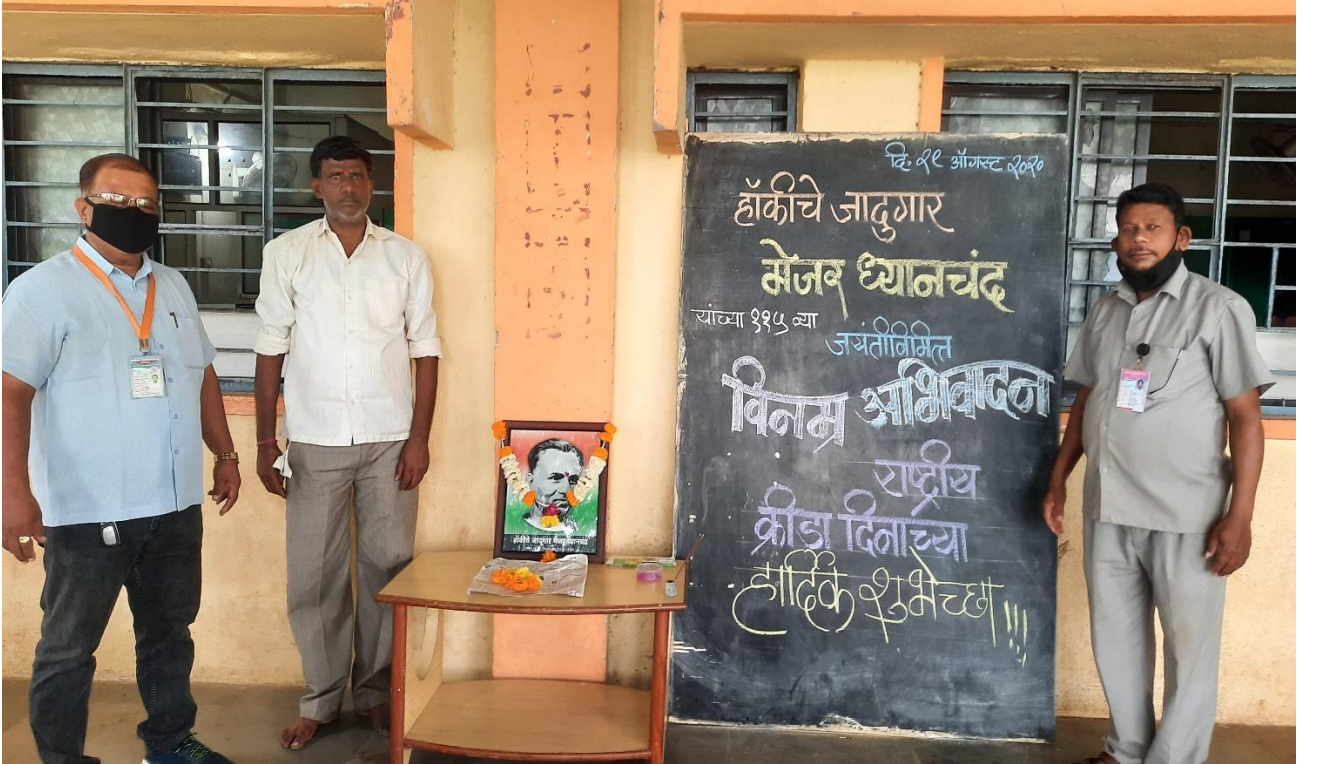 दि. २९ ऑगस्ट २०२०
हॉकीचे जादुगार
मेजर ध्यानचंद
यांच्या ११५ व्या
जयंतीनिमित्त
विनम्र अभिवादन
राष्ट्रीय
क्रीडा दिनाच्या
हार्दिक शुभेच्छा!!!
हॉकीचे जादुगार मेजर ध्यानचंद